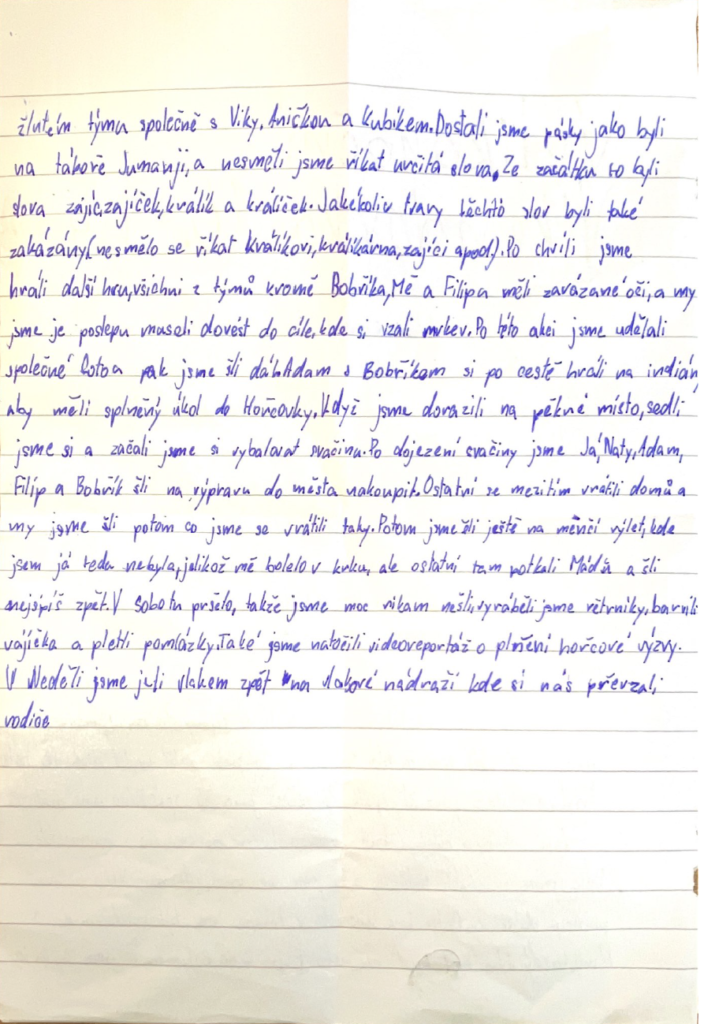 žlutém týmu společně s Viky, Aničkou a Kubíkem. Dostali jsme pásky jako byli
na táboře Jumanji, a nesměli jsme říkat určitá slova. Ze začátku to byli
slova zajíc, zajíček, králík a králíček. Jakékoliv tvary těchto slov byli také
zakázány (nesmělo se říkat králíkovi, králíkárna, zajíci apod.). Po chvíli jsme
hráli další hru, všichni z týmů kromě Bobříka, Mě a Filipa měli zavázané oči, a my
jsme je postupu museli dovést do cíle, kde si vzali mrkev. Po této akci jsme udělali
společné foto a pak jsme šli dál. Adam s Bobříkem si po cestě hráli na indián
aby měli splněný úkol do Hořčovky. Když jsme dorazili na pěkné místo, sedli
jsme si a začali jsme si vybalovat svačinu. Po dojezení svačiny jsme Já, Naty, Adam,
Filip a Bobřík šli na výpravu do města nakoupit. Ostatní se mezitím vrátili domů a
my jsme šli potom co jsme se vrátili taky. Potom jsme šli ještě na menčí výlet, kde
jsem já teda nebyla, jelikož mě bolelo v krku, ale ostatní tam potkali Máďu a šli
nejspíš zpět. V sobotu pršelo, takže jsme moc nikam nešli, vyráběli jsme větrníky, barvili
vajíčka a pletli pomlázky. Také jsme natočili videoreportáž o plnění hořcové výzvy.
V Neděli jsme jeli vlakem zpět na vlakové nádraží kde si nás převzali
rodiče